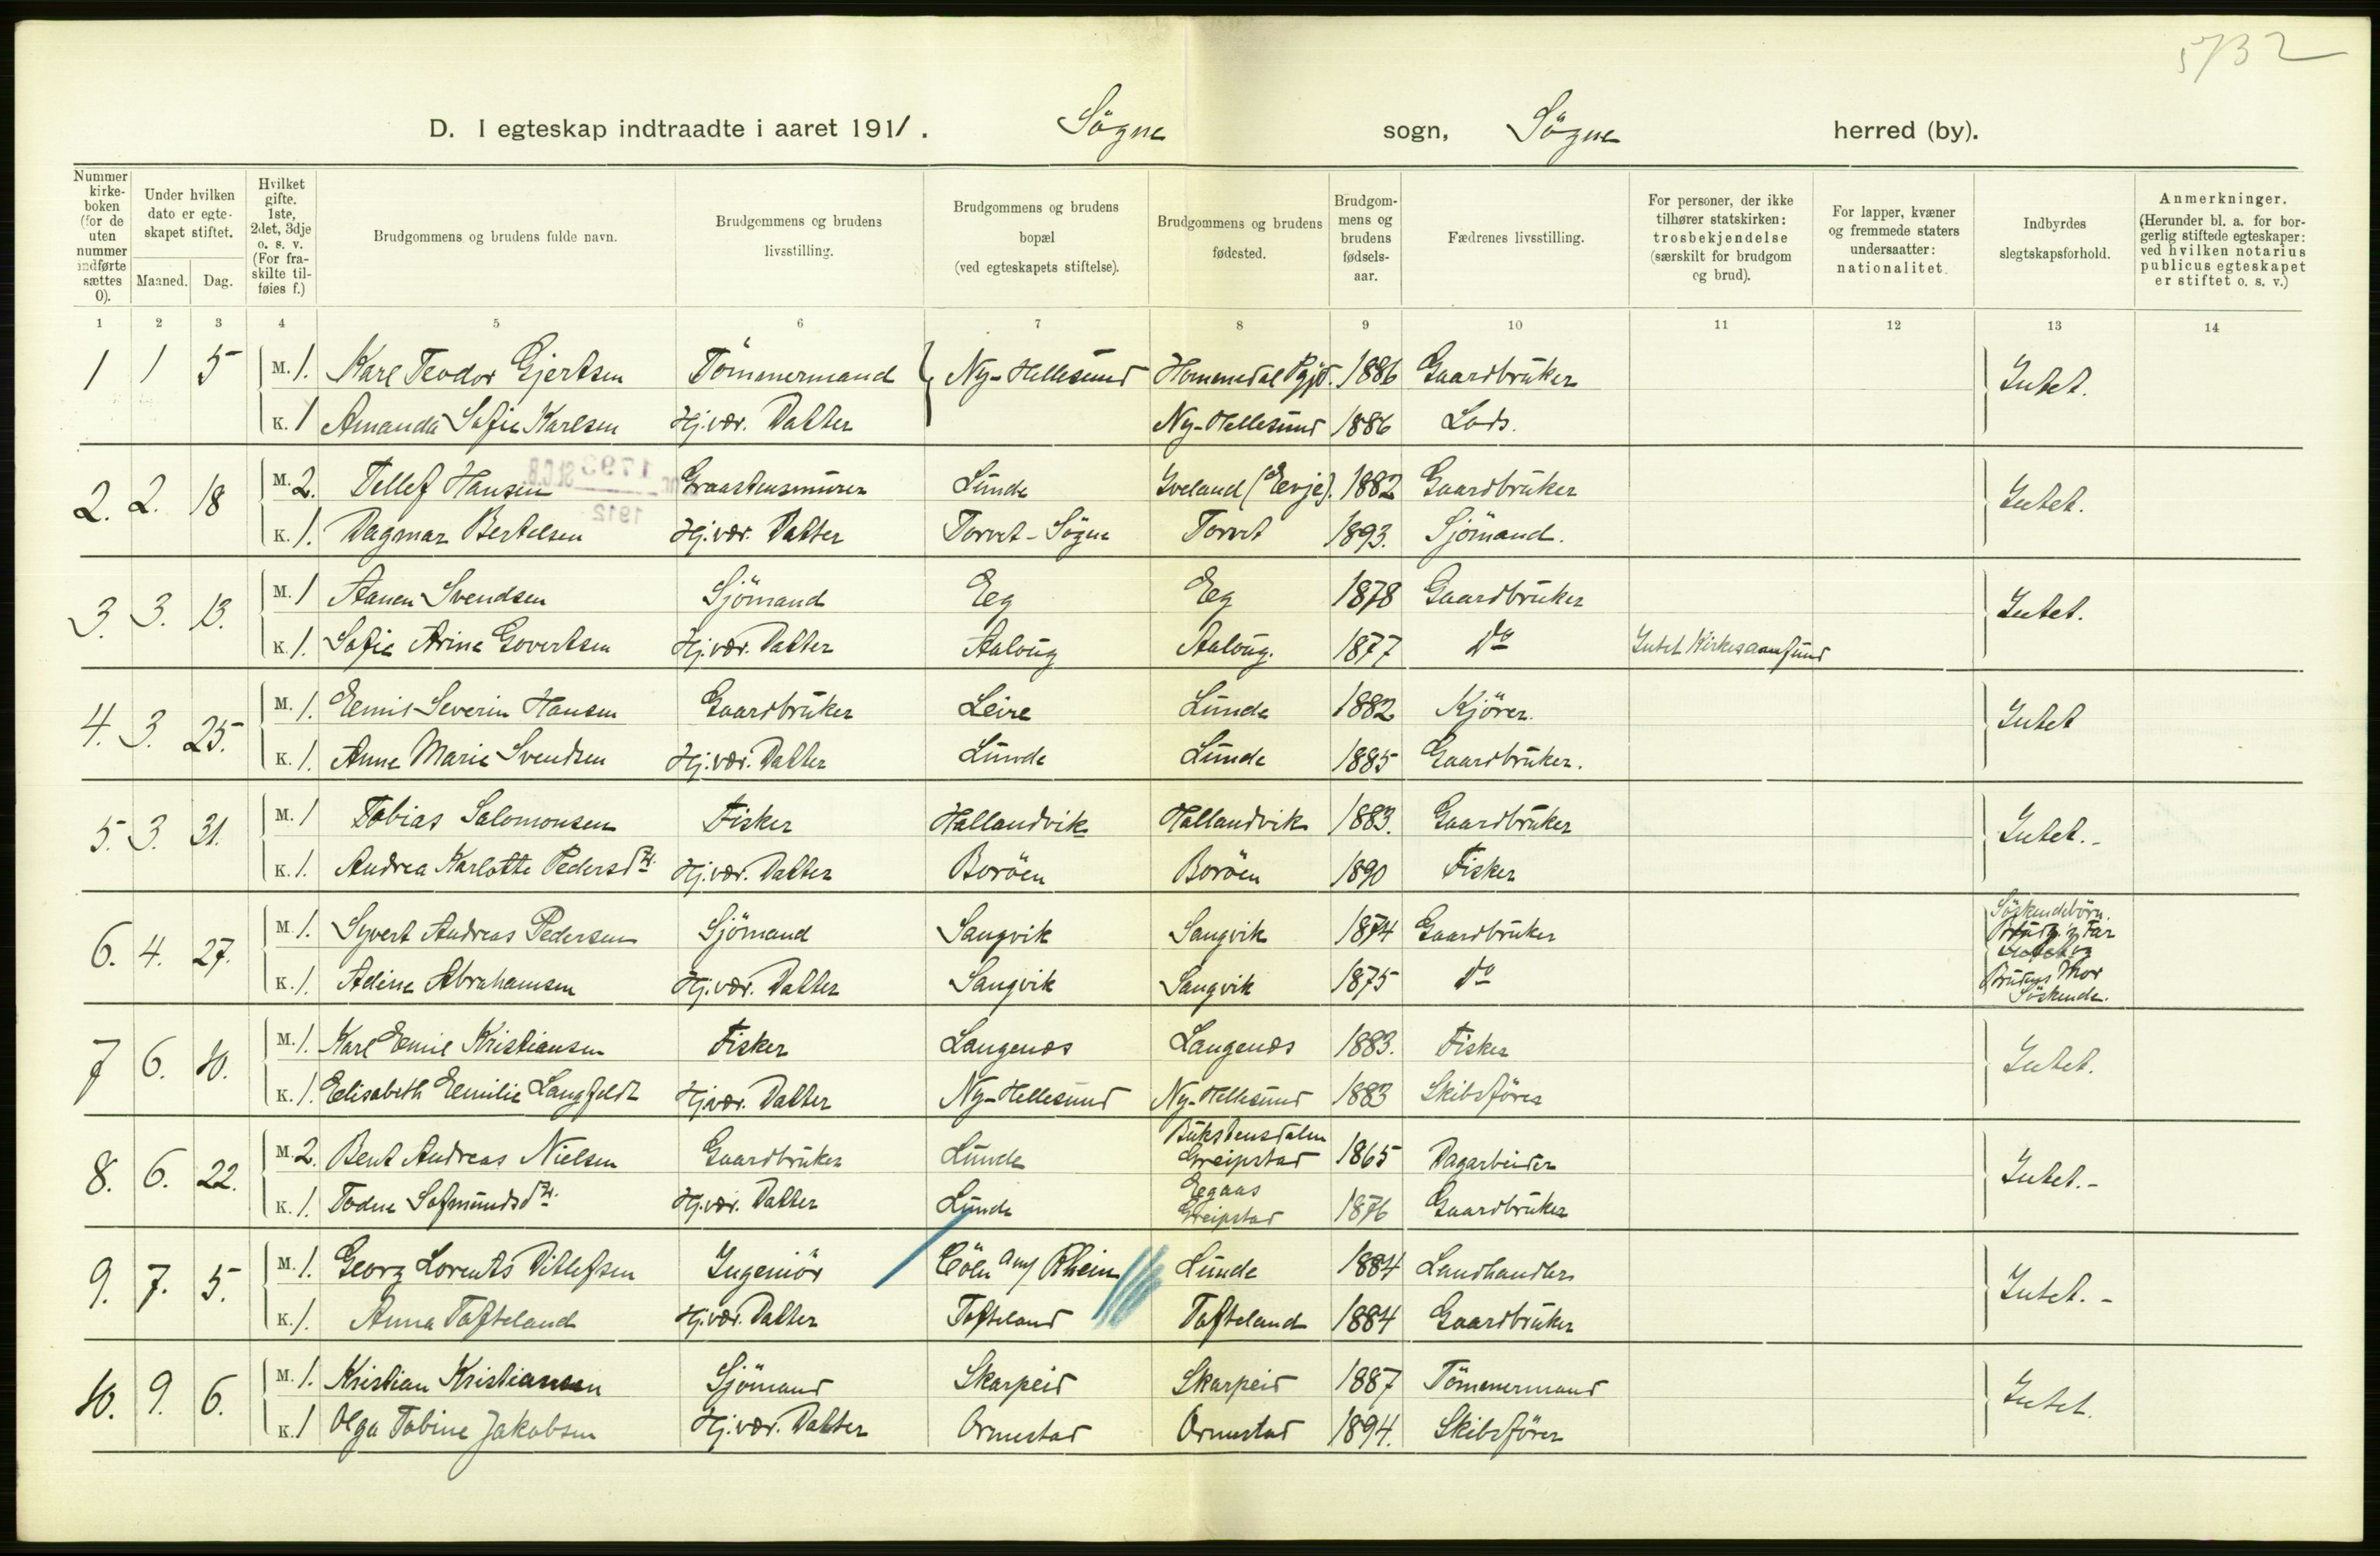 5732
D. I egteskap indtraadte i aaret 1911. Søgne sogn, Søgne herred (by).
Nummer kirke-boken (for de uten nummer indførte sættes 0). Under hvilken dato er egte-skapet stiftet. Maaned. Dag. Hvilket gifte. 1ste, 2det, 3dje o. s. v. (For fra-skilte til-føies f.) Brudgommens og brudens fulde navn. Brudgommens og brudens livsstilling. Brudgommens og brudens bopæl (ved egteskapets stiftelse). Brudgommens og brudens fødested. Brudgom-mens og brudens fødsels-aar. Fædrenes livsstilling. For personer, der ikke tilhører statskirken: trosbekjendelse (særskilt for brudgom og brud). For lapper, kvæner og fremmede staters undersaatter: nationalitet. Indbyrdes slegtskapsforhold. Anmerkninger. (Herunder bl. a. for bor-gerlig stiftede egteskaper: ved hvilken notarius publicus egteskapet er stiftet o. s. v.)
1 2 3 4 5 6 7 8 9 10 11 12 13 14
1 1 5 M. 1. Karl Teodor Gjertsen Tömmermand Ny-Hellesund Hommedal Pgjd. 1886 Gaardbruker Intet.
K. 1 Amanda Sofie Karlsen Hj.vær. Datter Ny-Hellesund 1886 Lods.
2. 2. 18 M. 2. Tellef Hansen Graastensmurer Lunde Iveland (Evje). 1882 Gaardbruker Intet.
K. 1. Dagmar Bertelsen Hj.vær. Datter Torvet-Sögne Torvet 1893. Sjömand.
3. 3. 13. M. 1 Aanen Svendsen Sjömand Eeg Eeg 1878 Gaardbruker Intet.
K. 1. Sofie Arine Govertsen Hj.vær. Datter Aaloug Aaloug. 1877 Do Intet Kirkesamfund
4. 3. 25. M. 1. Emil Severin Hansen Gaardbruker Leire Lunde 1882 Kjörer. Intet
K. 1. Anne Marie Svendsen Hj.vær. Datter Lunde Lunde 1885 Gaardbruker.
5. 3. 31. M. 1 Tobias Salomonsen Fisker Hallandvik Hallandvik 1883. Gaardbruker Intet.-
K. 1. Andrea Karlotte Pedersdtr. Hj.vær. Datter Boröen Boröen 1890 Fisker
6. 4. 27. M. 1. Syvert Andreas Pedersen Sjömand Sangvik Sangvik 1874 Gaardbruker Söskendebörn. Brudg.s Far
K. 1. Adine Abrahamsen Hj.vær. Datter Sangvik Sangvik 1875 Do Brudens Mor Söskende.
7 6. 10. M. 1. Karl Emil Kristiansen Fisker Langenes Langenes 1883. Fisker Intet.
K. 1. Elisabeth Emilie Langfeldt Hj.vær. Datter Ny-Hellesund Ny-Hellesund 1883 Skibsförer
8. 6. 22. M. 2. Bent Andreas Nielsen Gaardbruker Lunde Bukstensdalen Greipstad 1865 Dagarbeider Intet.-
K. 1. Todne Sofmundsdtr. Hj.vær. Datter Lunde Egaas Greipstad 1876 Gaardbruker
9. 7. 5. M. 1. Georg Lorents Ditlefsen Ingeniör Cöln am Rhein Lunde 1884 Landhandler Intet.-
K. 1. Anna Tofteland Hj.vær. Datter Tofteland Tofteland 1884 Gaardbruker
10. 9. 6. M. 1. Kristian Kristiansen Sjömand Skarpeid Skarpeid 1887 Tömmermand Intet.
K. 1 Olga Tobine Jakobsen Hj.vær. Datter Ormestad Ormestad 1894. Skibsförer